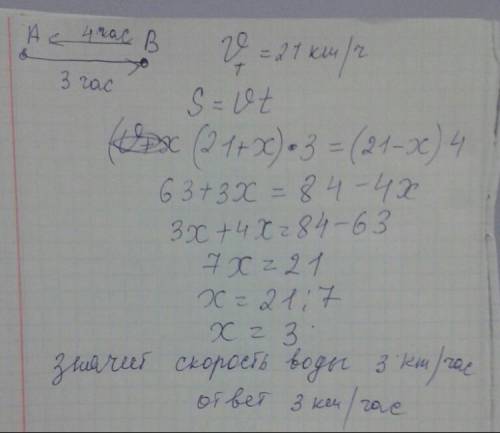 A 4 час B
3 час
V т = 21 км/ч
S = Vt
(21+x)•3 = (21-x)4
63+3x = 84-4x
3x+4x=84-63
7x=21
x=21:7
x=3
значит скорость воды 3 км/час
ответ 3 км/час